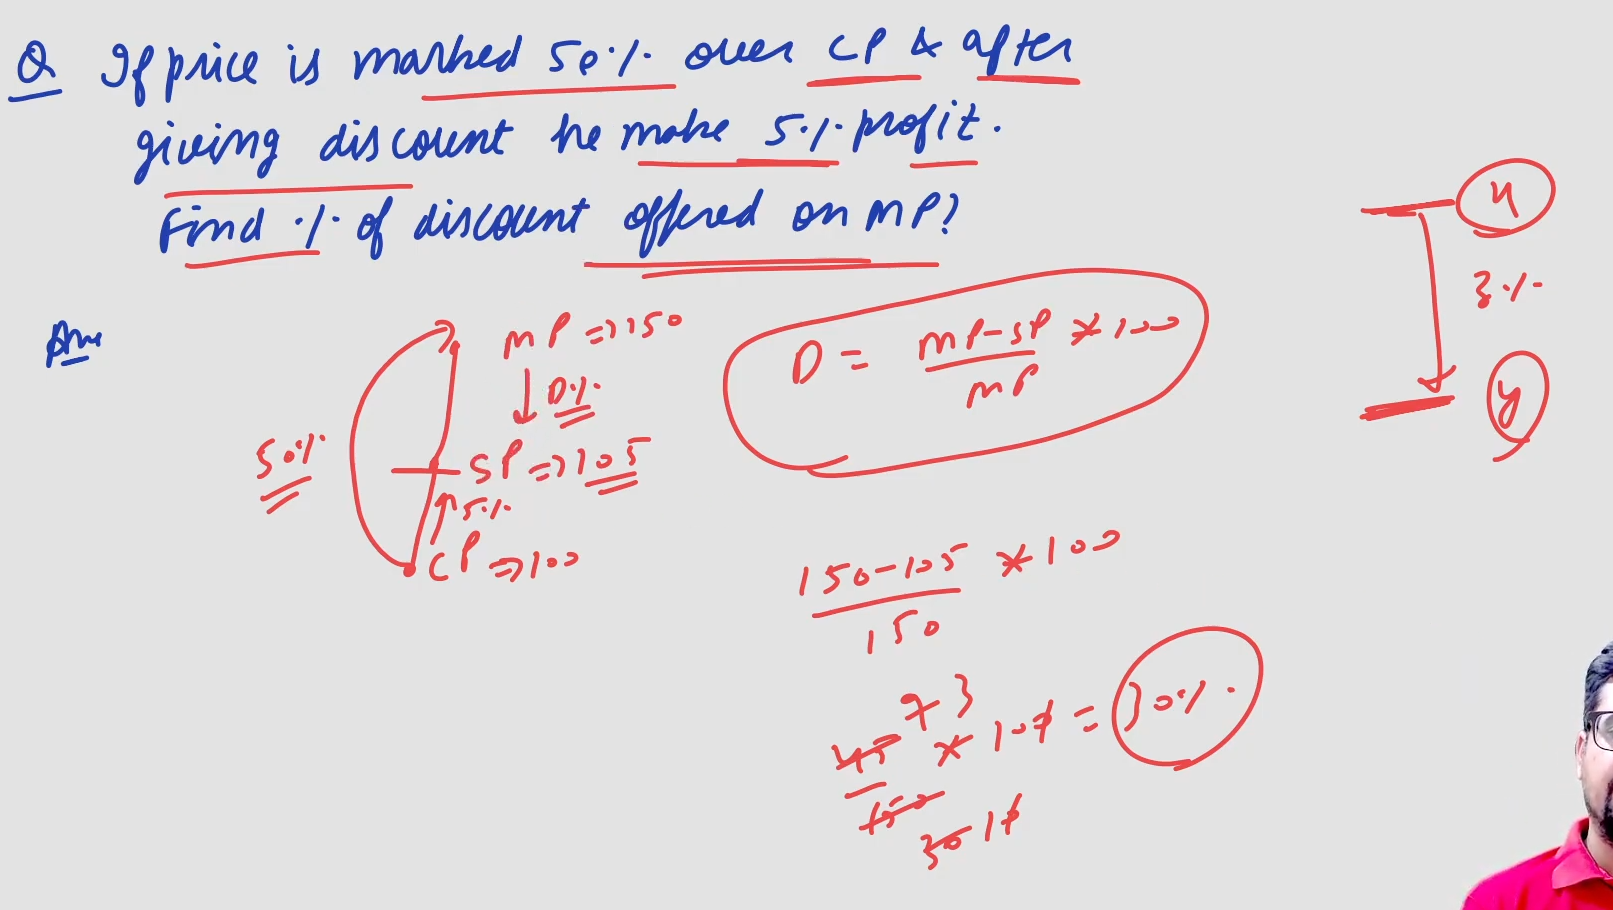 Q If price is marked 50% over CP & after
giving discount he make 5% profit.
Find % of discount offered on MP?
Ans
MP => 150
D%
50%
SP => 105
5%
CP => 100
D = MP-SP * 100
MP
x
3%
y
150-105 * 100
150
9 3
45 * 100 = 30%.
150
30 10